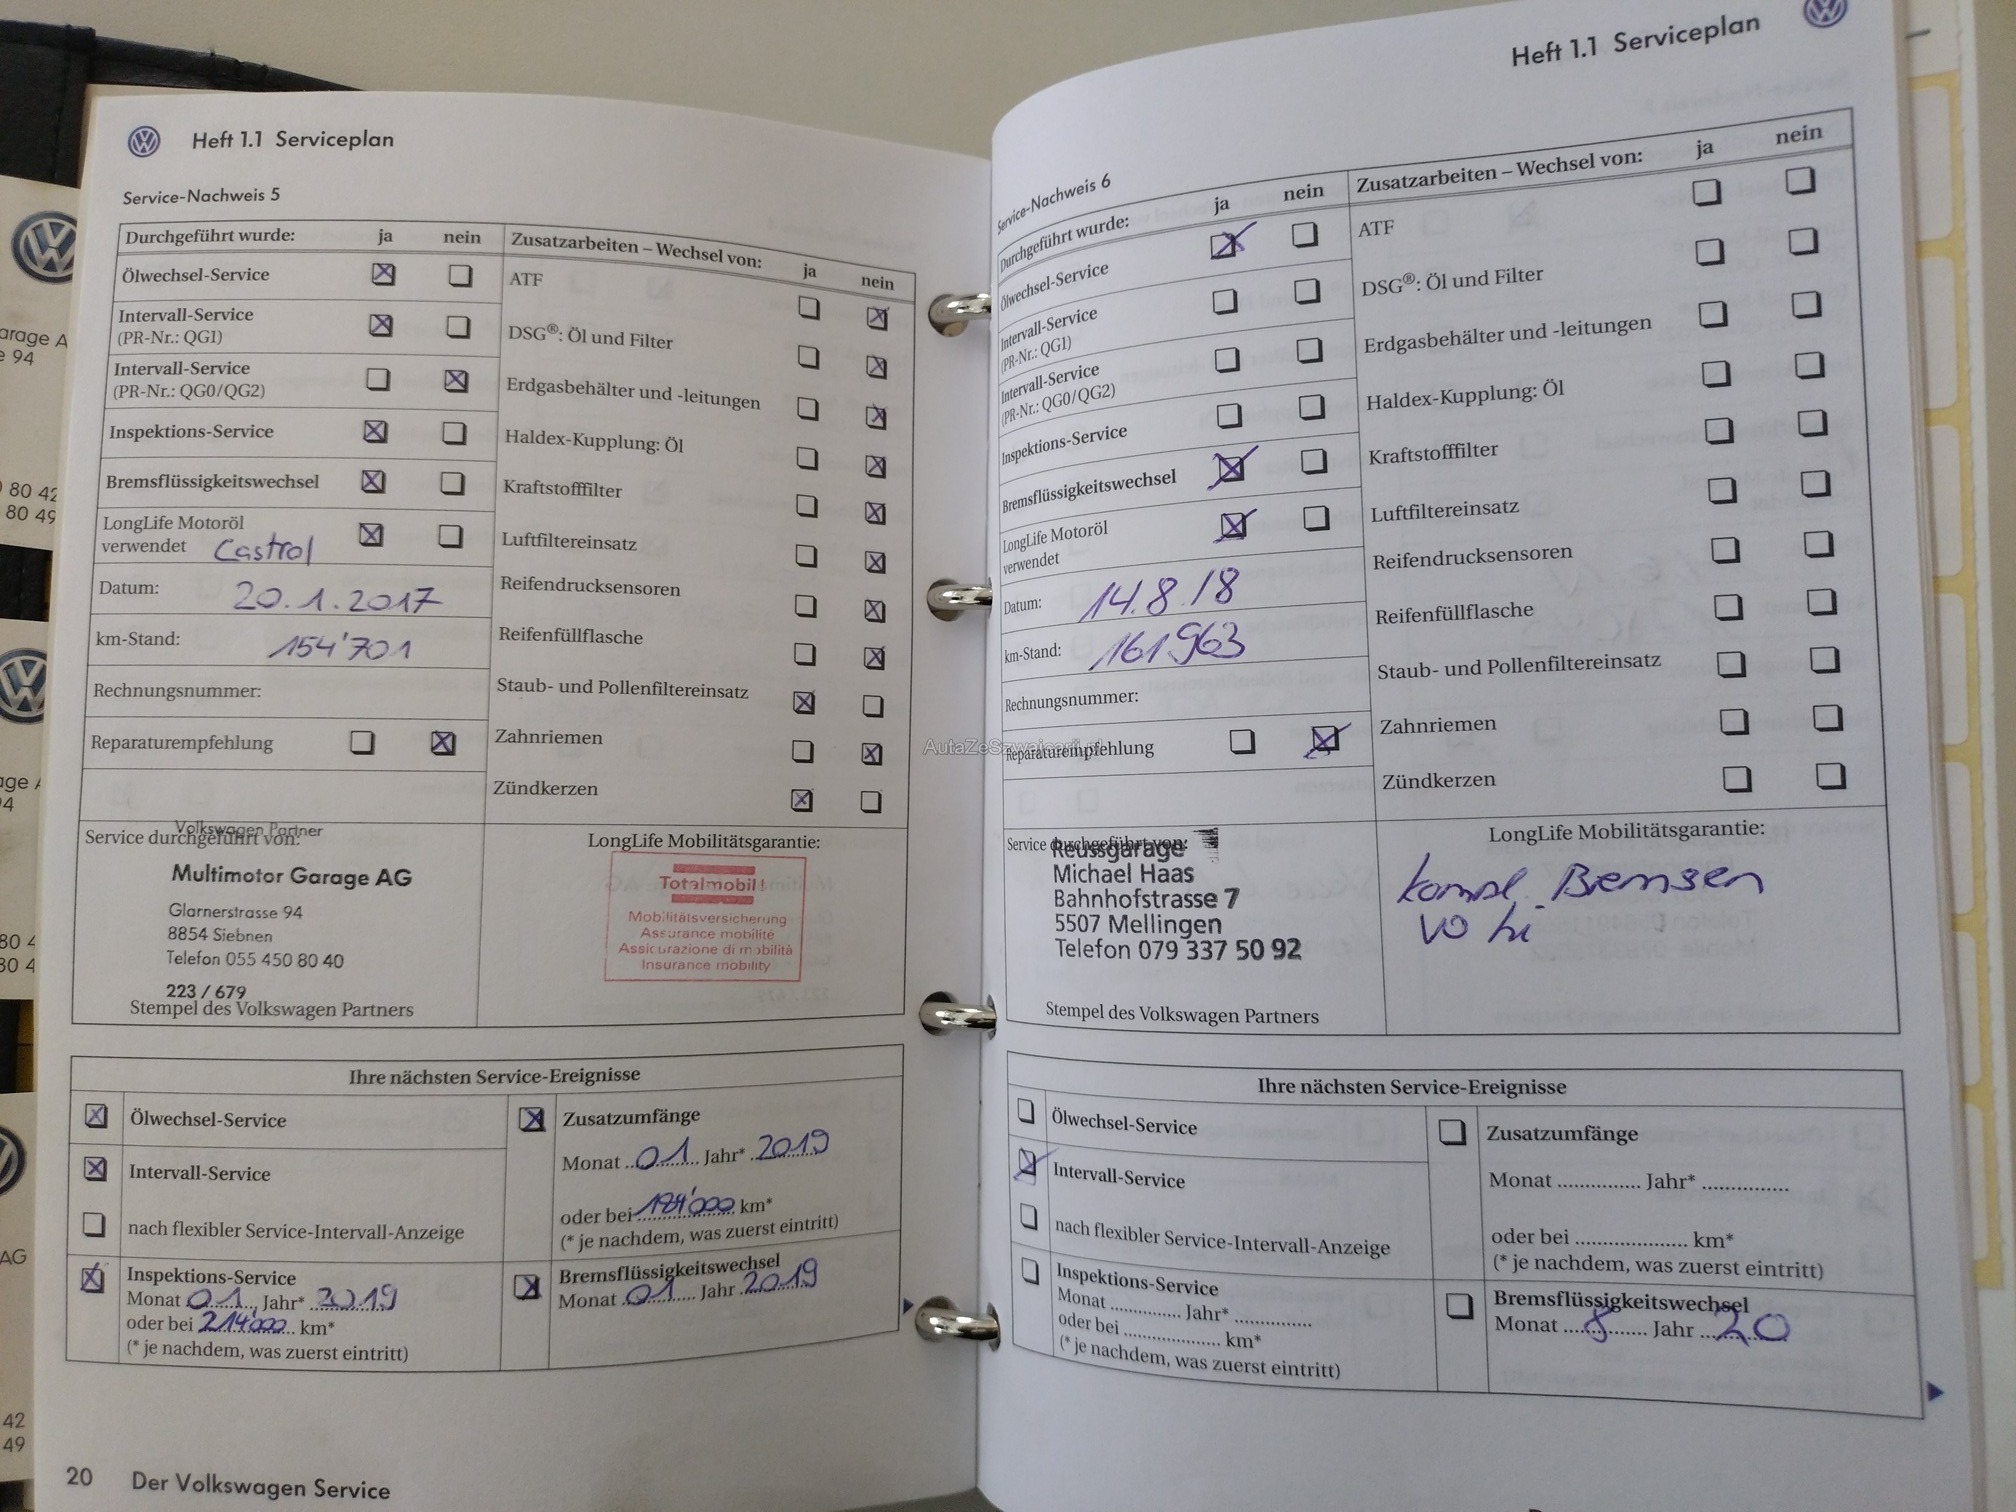 Heft 1.1 Serviceplan
Service-Nachweis 5
Durchgeführt wurde: ja nein
Ölwechsel-Service
Intervall-Service
(PR-Nr.: QG1)
Intervall-Service
(PR-Nr.: QG0/QG2)
Inspektions-Service
Bremsflüssigkeitswechsel
LongLife Motoröl
verwendet Castrol
Datum: 20.1.2017
km-Stand: 154'701
Rechnungsnummer:
Reparaturempfehlung
Zusatzarbeiten – Wechsel von: ja nein
ATF
DSG®: Öl und Filter
Erdgasbehälter und -leitungen
Haldex-Kupplung: Öl
Kraftstofffilter
Luftfiltereinsatz
Reifendrucksensoren
Reifenfüllflasche
Staub- und Pollenfiltereinsatz
Zahnriemen
Zündkerzen
Volkswagen Partner
Service durchgeführt von:
Multimotor Garage AG
Glarnerstrasse 94
8854 Siebnen
Telefon 055 450 80 40
223 / 679
Stempel des Volkswagen Partners
LongLife Mobilitätsgarantie:
Totalmobil!
Mobilitätsversicherung
Assurance mobilité
Assicurazione di mobilità
Insurance mobility
Ihre nächsten Service-Ereignisse
Ölwechsel-Service
Intervall-Service
nach flexibler Service-Intervall-Anzeige
Inspektions-Service
Monat 01 Jahr* 2019
oder bei 214'000 km*
(* je nachdem, was zuerst eintritt)
Zusatzumfänge
Monat 01 Jahr* 2019
oder bei 184'000 km*
(* je nachdem, was zuerst eintritt)
Bremsflüssigkeitswechsel
Monat 01 Jahr 2019
20 Der Volkswagen Service
Heft 1.1 Serviceplan
Service-Nachweis 6
Durchgeführt wurde: ja nein
Ölwechsel-Service
Intervall-Service
(PR-Nr.: QG1)
Intervall-Service
(PR-Nr.: QG0/QG2)
Inspektions-Service
Bremsflüssigkeitswechsel
LongLife Motoröl
verwendet
Datum: 14.8.18
km-Stand: 161963
Rechnungsnummer:
Reparaturempfehlung
Zusatzarbeiten – Wechsel von: ja nein
ATF
DSG®: Öl und Filter
Erdgasbehälter und -leitungen
Haldex-Kupplung: Öl
Kraftstofffilter
Luftfiltereinsatz
Reifendrucksensoren
Reifenfüllflasche
Staub- und Pollenfiltereinsatz
Zahnriemen
Zündkerzen
Service durchgeführt von:
Reussgarage
Michael Haas
Bahnhofstrasse 7
5507 Mellingen
Telefon 079 337 50 92
Stempel des Volkswagen Partners
LongLife Mobilitätsgarantie:
kompl. Bremsen
vo hi
Ihre nächsten Service-Ereignisse
Ölwechsel-Service
Intervall-Service
nach flexibler Service-Intervall-Anzeige
Inspektions-Service
Monat Jahr*
oder bei km*
(* je nachdem, was zuerst eintritt)
Zusatzumfänge
Monat Jahr*
oder bei km*
(* je nachdem, was zuerst eintritt)
Bremsflüssigkeitswechsel
Monat 8 Jahr 20